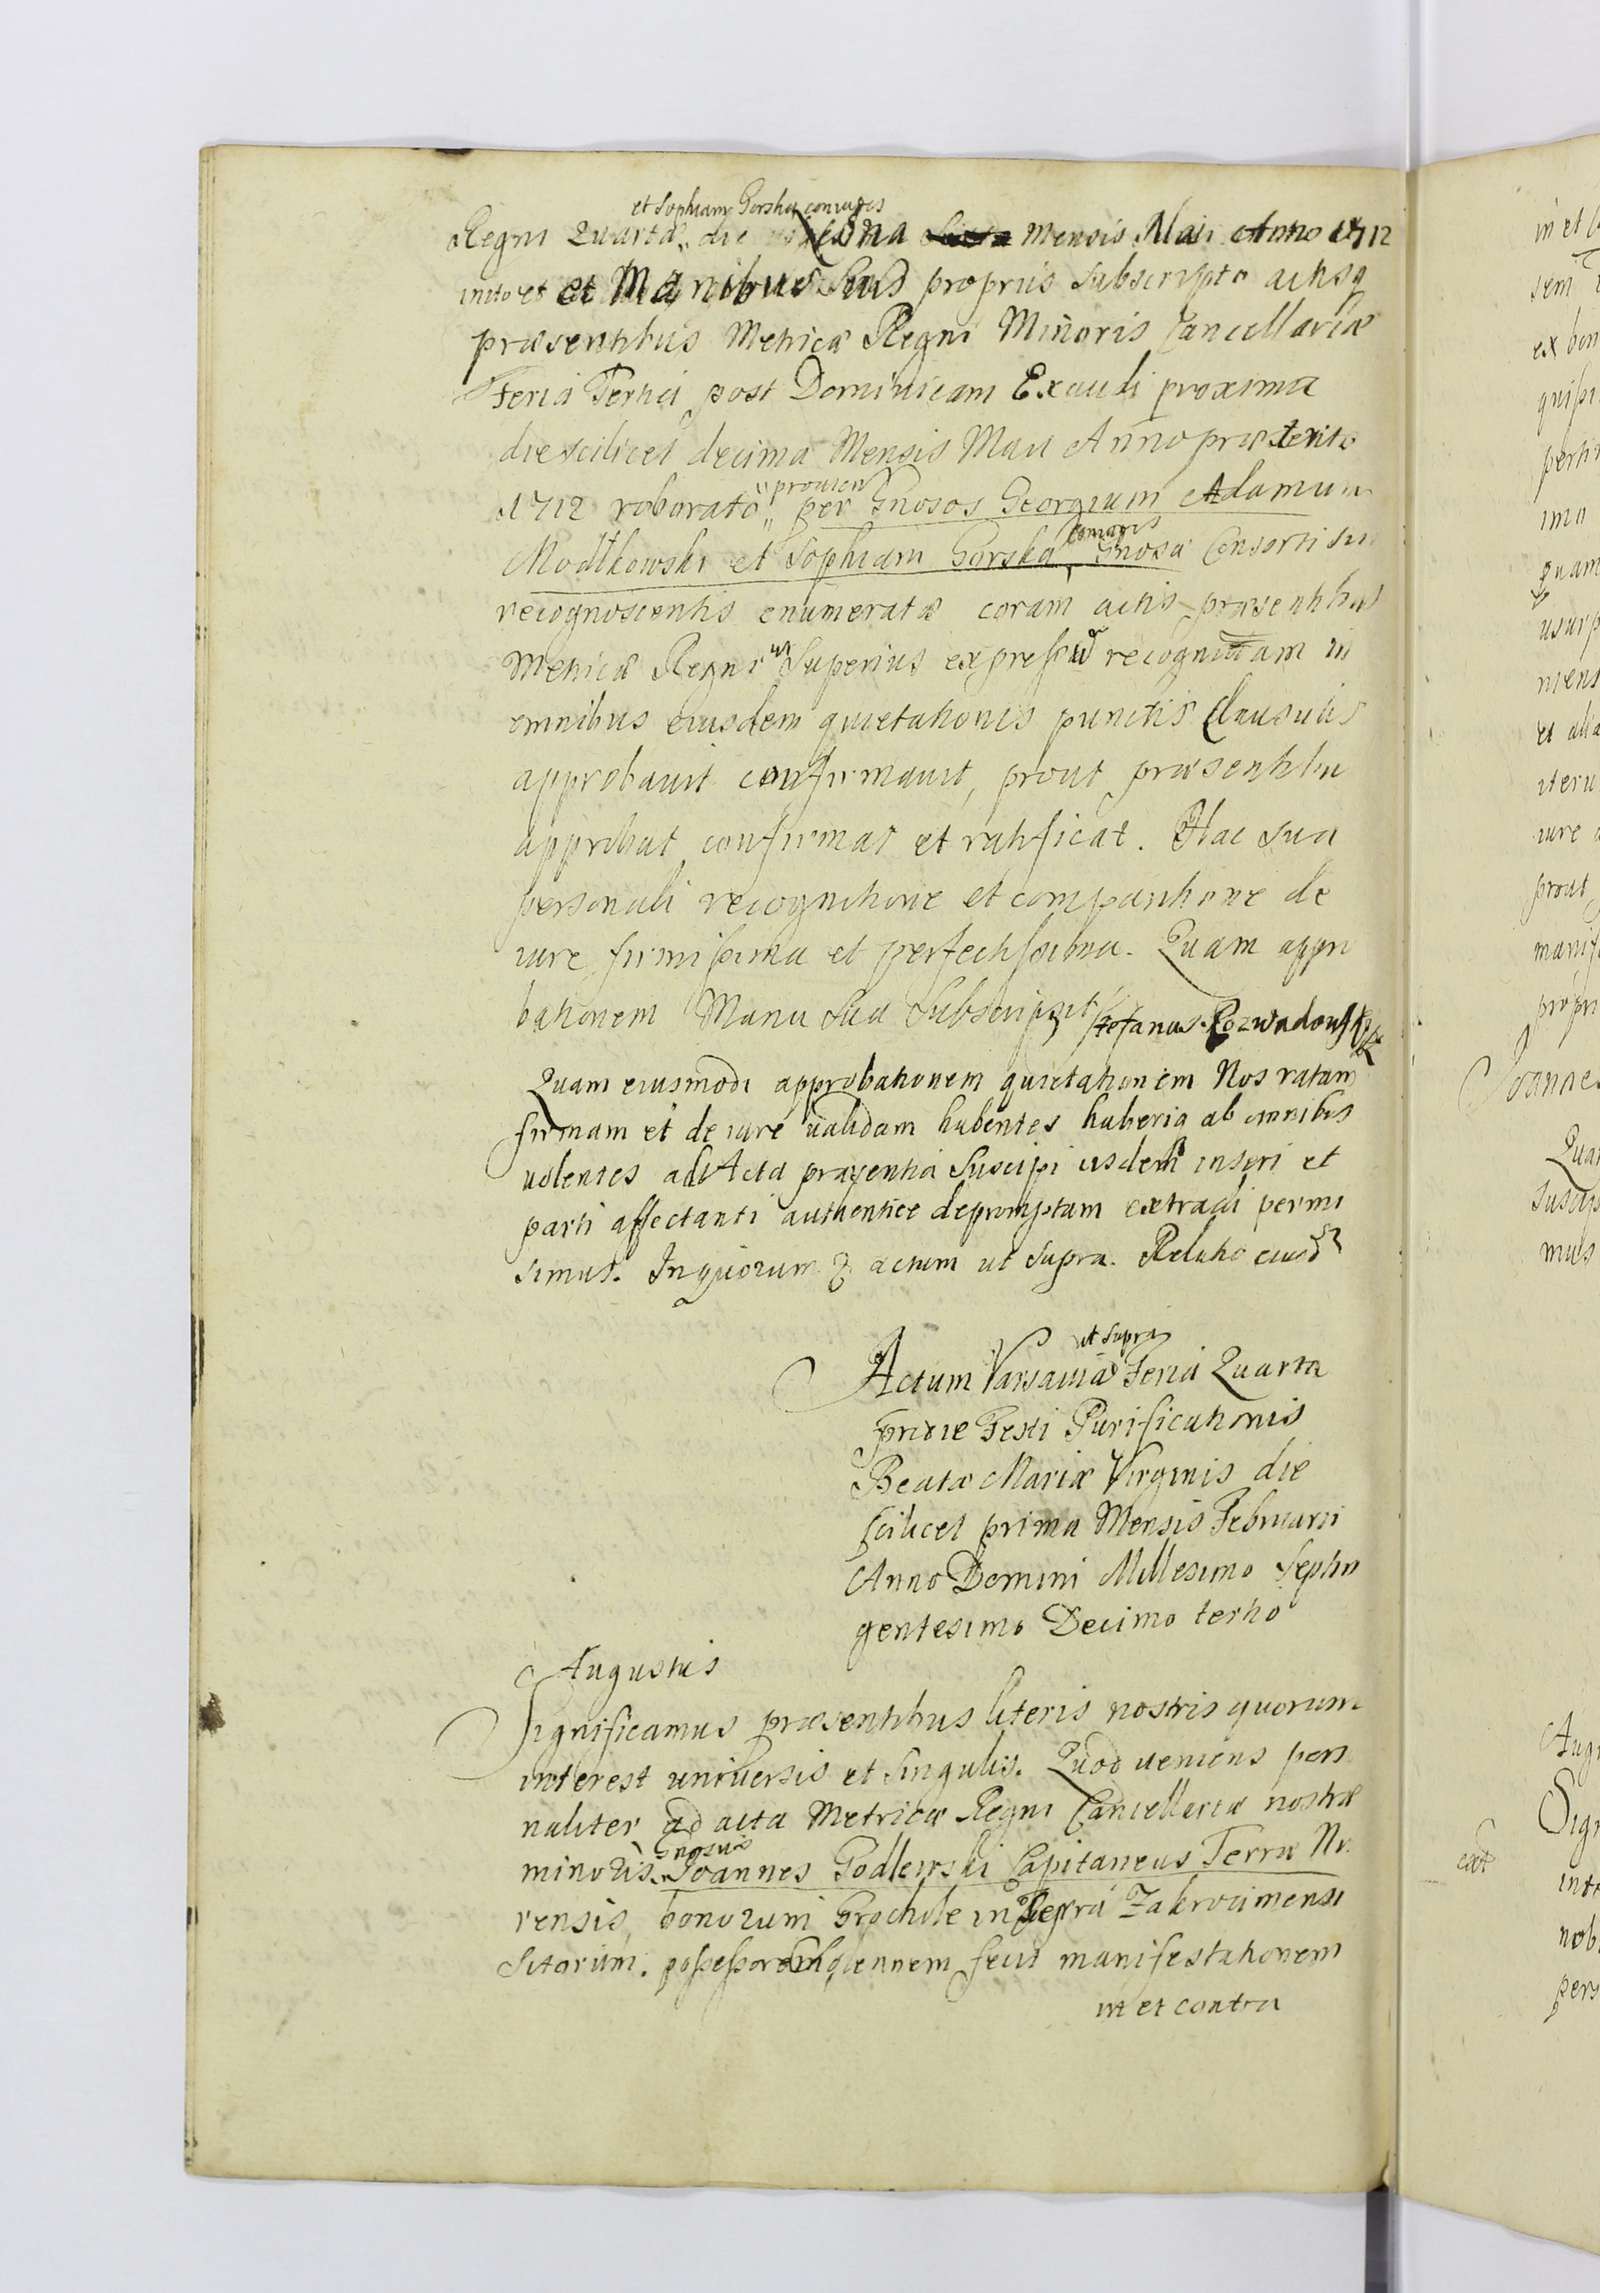 et Sophiam Gorska coniuges
Regni Quarta die nona mensis Maii Anno 1712
inito et et Manibus Suis propriis subscripto actisq
præsentibus Metricæ Regni Minoris Cancellariæ
Feria Tertia post Dominicam Exaudi proxima
die scilicet decima Mensis Maii Anno præterito
prouien
1712 roborato per Gnosos Georgium Adamum
coniuges
Modlkowski et Sophiam Gorska Gnosa Consorti sui
recognoscentis enumeratæ coram actis præsentibus
Metricæ Regni ut Superius expressu recognitam in
omnibus eiusdem quietationis punctis Clausulis
approbauit confirmauit, prout præsentibu
approbat confirmat et ratificat. Hac sua
personali recognitione et comparitione de
iure firmissima et perfectissima. Quam appro
bationem Manu Sua Subscripsit Stefanus Rozwadowski
Quam eiusmodi approbationem quietationem Nos ratam
firmam et de iure ualidam habentes haberiq ab omnibus
uolentes ad Acta præsentia Suscipi iisdem inseri et
parti affectanti authentice depromptam extradi permi
simus. In quorum actum ut supra. Relatio eiusd
ut supra
Actum Varsauiæ Feria Quarta
pridie Festi Purificationis
Beatæ Mariæ Virginis die
scilicet prima Mensis Februarii
Anno Domini Millesimo Septin
gentesimo Decimo tertio
Augustus
Significamus præsentibus literis nostris quorum
interest universis et singulis. Quod ueniens pers
naliter ad acta Metricæ Regni Cancellariæ nostræ
Gnosus
minoris Joannes Godlewski Capitaneus Terræ Nu
rensis bonorum Grochale in Terra Zakrocimensi
Sitorum possessor solennem fecit manifestationem
in et contra
in et
sem
ex bon
quipi
perti
imo
quam
usurp
mens
et alia
iteru
iure
prout
manif
propri
Joannes
Qua
suscip
mus
Augu
Sign
ext
inte
nob
pers